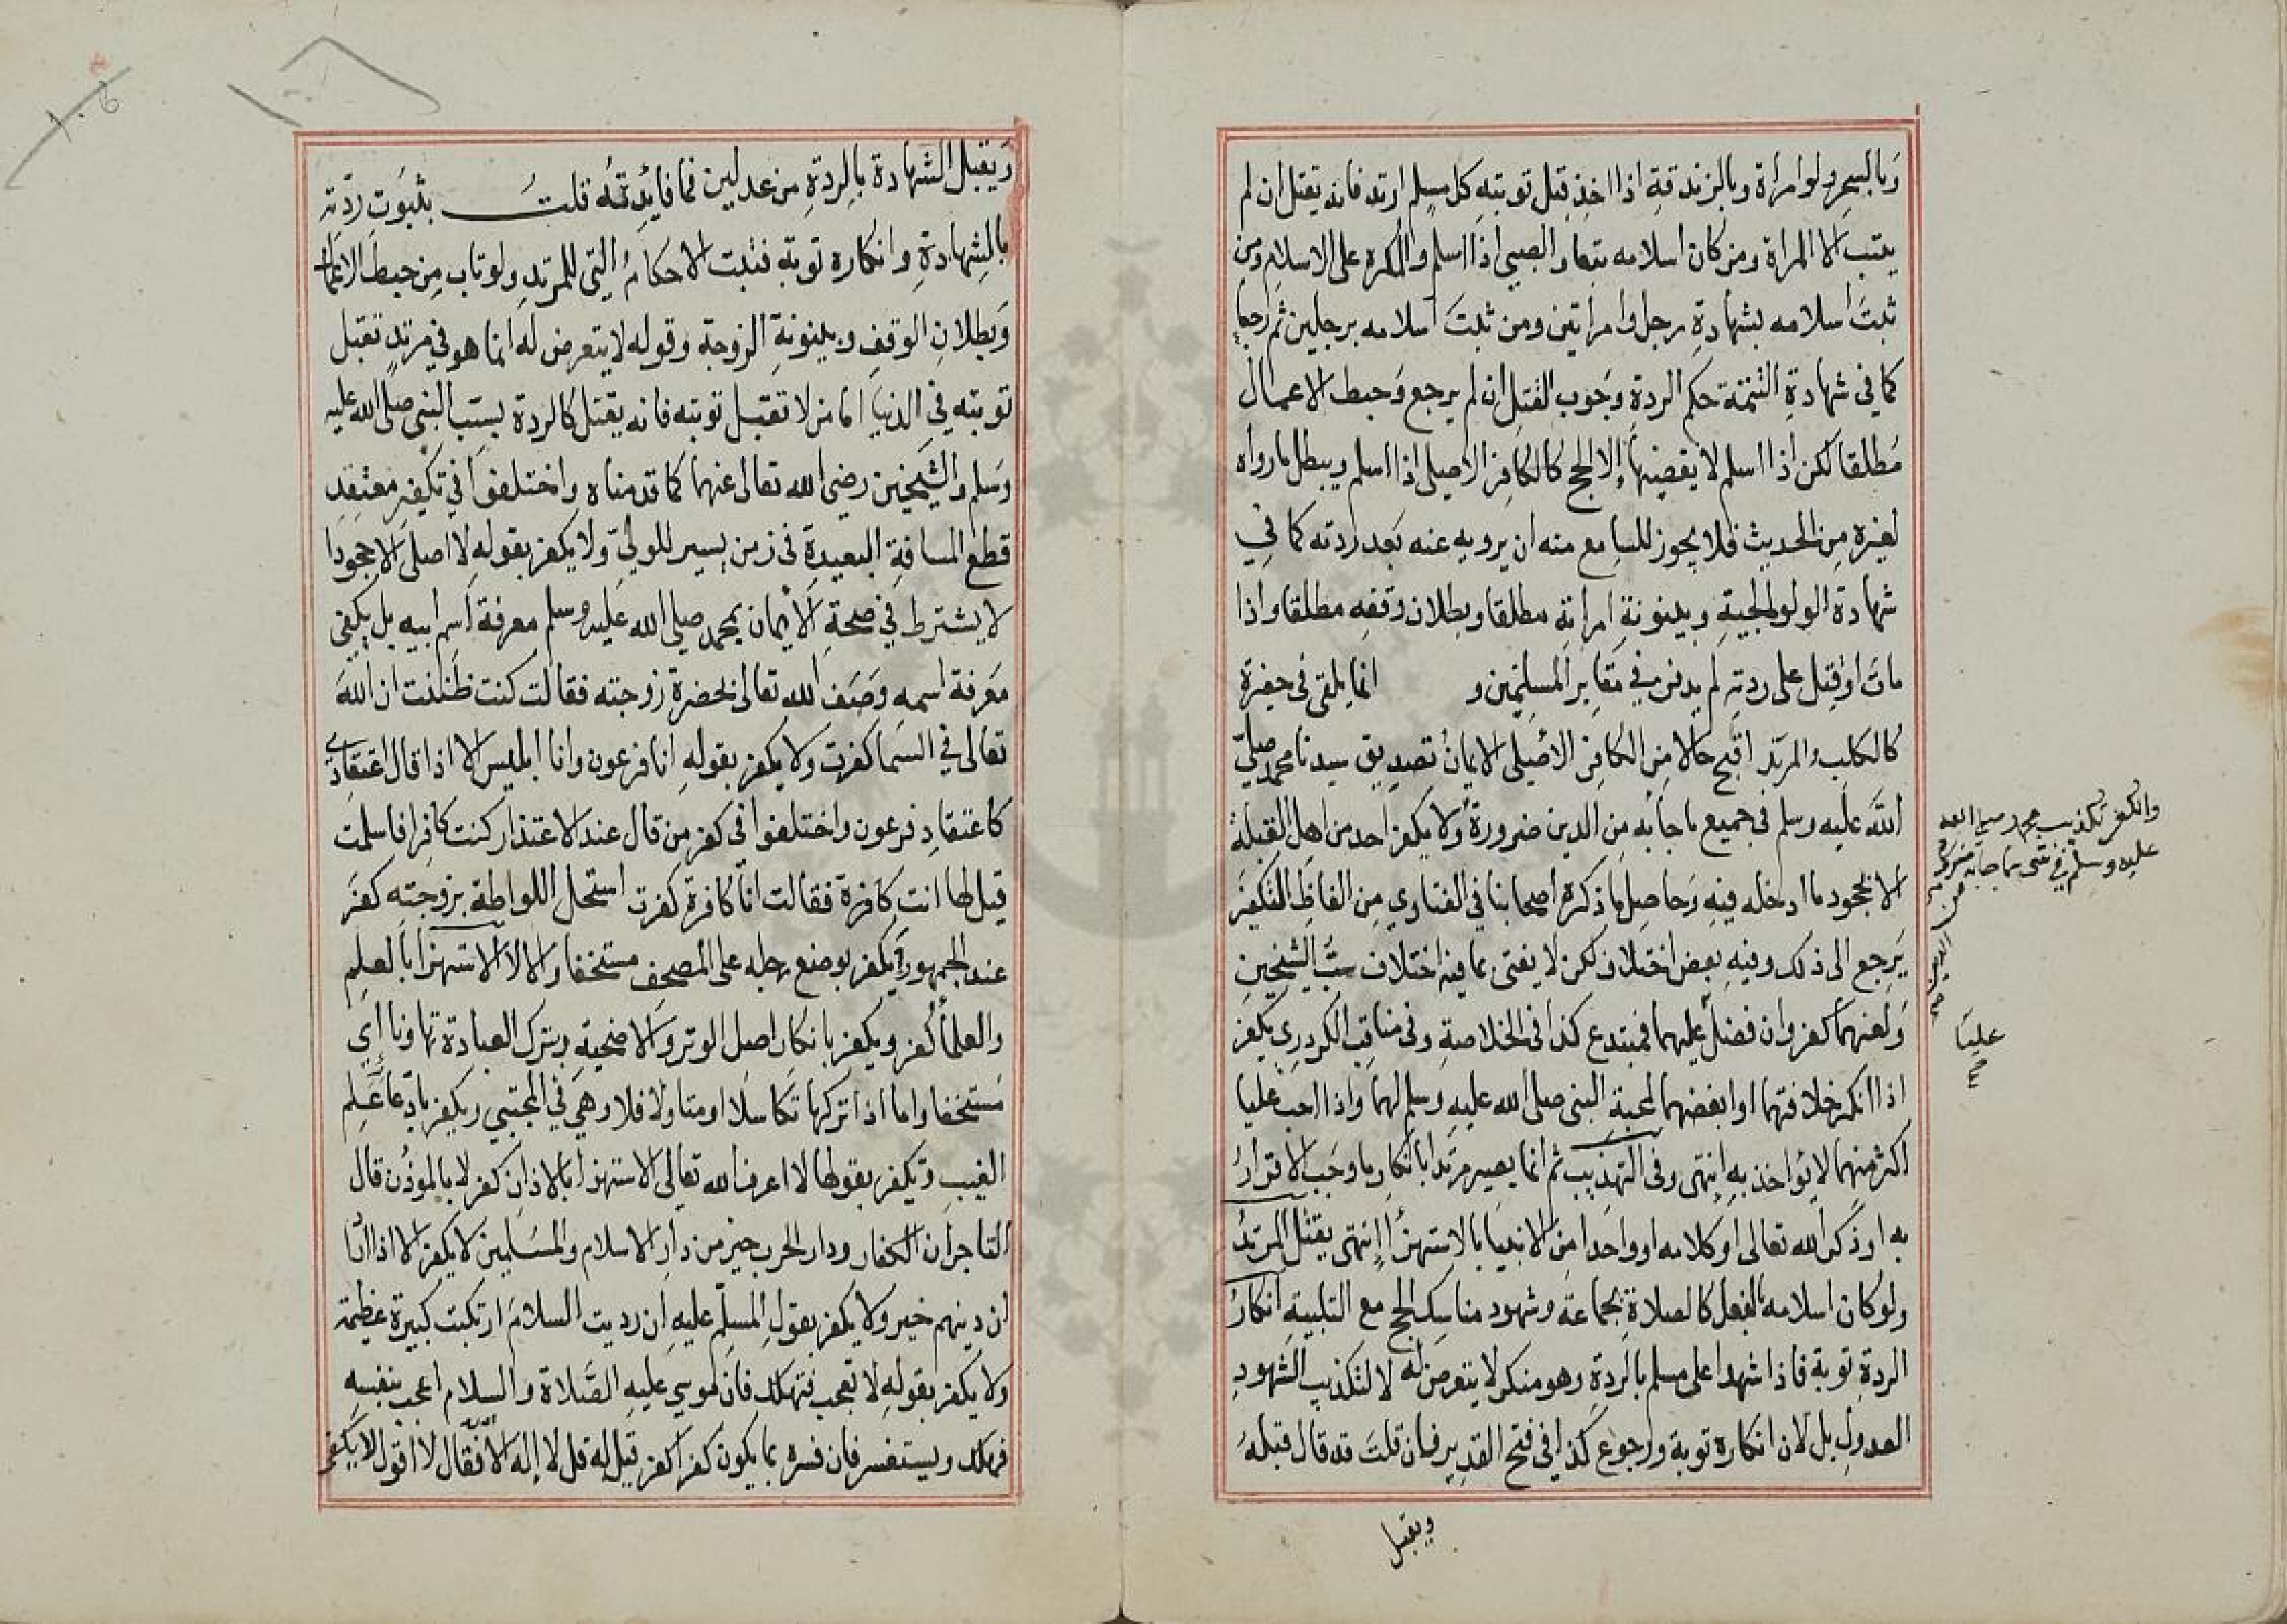 وبالسحر ولو امراة وبالزندقة اذا اخذ قبل توبته كل مسلم ارتد فانه يقتل ان لم
يتب الا المراة ومن كان اسلامه تبعا والصبي اذا اسلم والمكره على الاسلام ومن
ثبت اسلامه بشهادة رجل وامراتين ومن ثبت اسلامه برجلين ثم رجعا
كما في شهادة اليتيمة حكم الردة وجوب القتل ان لم يرجع وحبط الاعمال
مطلقا لكن اذا اسلم لا يقضيها الا الحج كالكافر الاصلي اذا اسلم ويبطل ما رواه
لغيره من الحديث فلا يجوز للسامع منه ان يرويه عنه بعد ردته كما في
شهادة الولوالجية وبينونة امراته مطلقا وبطلان وقفه مطلقا واذا
مات او قتل على ردته لم يدفن في مقابر المسلمين و انما يلقى في حفرة
كالكلب والمرتد اقبح حالا من الكافر الاصلي الايمان تصديق سيدنا محمد صلى
الله عليه وسلم في جميع ما جا به من الدين ضرورة ولا يكفر احد من اهل القبلة
الا بجحود ما ادخله فيه وحاصل ما ذكره اصحابنا في الفتاوي من الفاظ التكفير
يرجع الى ذلك وفيه بعض اختلاف لكن لا يفتى بما فيه اختلاف سب الشيخين
ولعنهما كفر وان فضل عليهما فمبتدع كذا في الخلاصة وفي مناقب الكردري يكفر
اذا انكر خلافتهما او ابغضهما لمحبة النبي صلى الله عليه وسلم لهما واذا احب عليا
اكثر منهما لا يؤاخذ به انتهى وفي التهذيب ثم انما يصير مرتدا بانكار ما وجب الاقرار
به او ذكر الله تعالى او كلامه او واحدا من الانبيا بالاستهزا انتهى يقتل المرتد
ولو كان اسلامه بالفعل كالصلاة بجماعة وشهود مناسك الحج مع التلبية انكار
الردة توبة فاذا شهدا على مسلم بالردة وهو منكر لا يتعرض له لا لتكذيب الشهود
العدول بل لان انكاره توبة ورجوع كذا في فتح القدير فان قلت قد قال قبله
ويقبل
والكفر تكذيب محمد صلى الله
عليه وسلم في شي مما جا به ضرورة
من الدين صح
عليا
صح
١٠٦
ويقبل الشهادة بالردة من عدلين فما فايدته قلت بثبوت ردته
بالشهادة وانكاره توبة فتثبت الاحكام التي للمرتد ولو تاب من حبط الاعمال
وبطلان الوقف وبينونة الزوجة وقوله لا يتعرض له انما هو في مرتد تقبل
توبته في الدنيا اما من لا تقبل توبته فانه يقتل كالردة بسب النبي صلى الله عليه
وسلم والشيخين رضي الله تعالى عنهما كما قدمناه واختلفوا في تكفير معتقد
قطع المسافة البعيدة في زمن يسير للولي ولا يكفر بقوله لا اصلي الا جحودا
لا يشترط في صحة الايمان بمحمد صلى الله عليه وسلم معرفة اسم ابيه بل يكفي
معرفة اسمه وصف الله تعالى بحضرة زوجته فقالت كنت ظننت ان الله
تعالى في السما كفرت ولا يكفر بقوله انا فرعون وانا ابليس الا اذا قال اعتقادي
كاعتقاد فرعون واختلفوا في كفر من قال عند الاعتذار كنت كافرا فاسلمت
قيل لها انت كافرة فقالت انا كافرة كفرت استحل اللواطة بزوجته كفر
عند الجمهور ويكفر بوضع رجله على المصحف مستخفا والا لا الاستهزا بالعلم
والعلما كفر ويكفر بانكار اصل الوتر والاضحية وبترك العبادة تهاونا اي
مستخفا واما اذا تركها تكاسلا او متاولا فلا وهي في المجتبي ويكفر بادعا علم
الغيب وتكفر بقولها لا اعرف الله تعالى الاستهزا بالاذان كفر لا بالموذن قال
التاجر ان الكفار ودار الحرب خير من دار الاسلام والمسلمين لا يكفر الا اذا اراد
ان دينهم خير ولا يكفر بقول المسلم عليه ان رديت السلام ارتكبت كبيرة عظيمة
ولا يكفر بقوله لا تعجب فتهلك فان موسي عليه الصلاة والسلام اعجب بنفسه
فهلك ويستفسر فان فسره بما يكون كفرا كفر قيل له قل لا اله الا الله فقال لا اقول لا يكفر